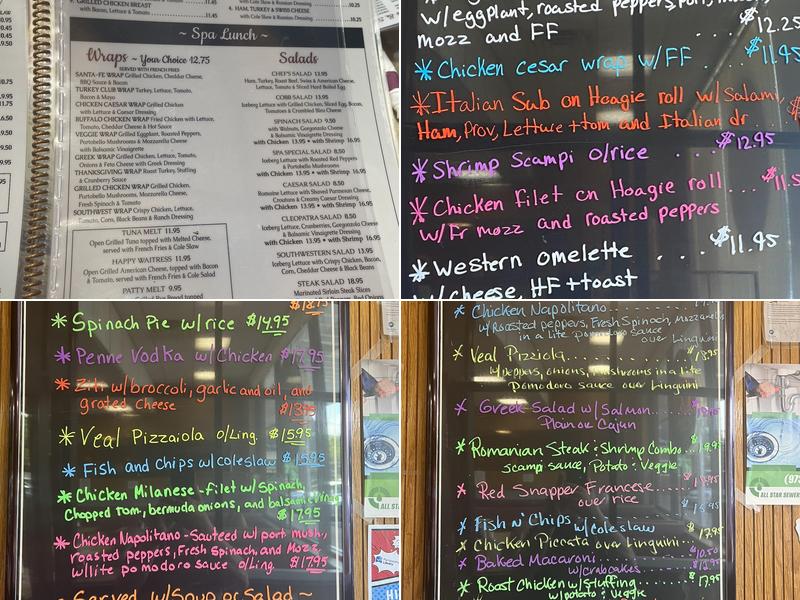 GRILLED CHICKEN BREAST
with Bacon, Lettuce & Tomato 11.45
4. HAM, TURKEY & SWISS CHEESE
with Cole Slaw & Russian Dressing
~ Spa Lunch ~
Wraps ~ Your Choice 12.75
SERVED WITH FRENCH FRIES
SANTA-FE WRAP Grilled Chicken, Cheddar Cheese,
BBQ Sauce & Bacon
TURKEY CLUB WRAP Turkey, Lettuce, Tomato,
Bacon & Mayo
CHICKEN CAESAR WRAP Grilled Chicken
with Lettuce & Caesar Dressing
BUFFALO CHICKEN WRAP Fried Chicken with Lettuce,
Tomato, Cheddar Cheese & Hot Sauce
VEGGIE WRAP Grilled Eggplant, Roasted Peppers,
Portobello Mushrooms & Mozzarella Cheese
with Balsamic Vinegrette
GREEK WRAP Grilled Chicken, Lettuce, Tomato,
Onions & Feta Cheese with Greek Dressing
THANKSGIVING WRAP Roast Turkey, Stuffing
& Cranberry Sauce
GRILLED CHICKEN WRAP Grilled Chicken,
Portobello Mushrooms, Mozzarella Cheese,
Fresh Spinach & Tomato
SOUTHWEST WRAP Crispy Chicken, Lettuce,
Tomato, Corn, Black Beans & Ranch Dressing
TUNA MELT 11.95
Open Grilled Tuna topped with Melted Cheese,
served with French Fries & Cole Slaw
HAPPY WAITRESS 11.95
Open Grilled American Cheese, topped with Bacon
& Tomato, served with French Fries & Cole Slaw
PATTY MELT 9.95
Salads
CHEF'S SALAD 13.95
Ham, Turkey, Roast Beef, Swiss & American Cheese,
Lettuce, Tomato & Sliced Hard Boiled Egg
COBB SALAD 13.95
Iceberg Lettuce with Grilled Chicken, Sliced Egg, Bacon,
Tomatoes & Crumbled Bleu Cheese
SPINACH SALAD 9.50
with Walnuts, Gorgonzola Cheese
& Balsamic Vinaigrette Dressing
with Chicken 13.95 • with Shrimp 16.95
SPA SPECIAL SALAD 8.50
Iceberg Lettuce with Roasted Red Peppers
& Portobello Mushrooms
with Chicken 13.95 • with Shrimp 16.95
CAESAR SALAD 8.50
Romaine Lettuce with Shaved Parmesan Cheese,
Croutons & Creamy Caesar Dressing
with Chicken 13.95 • with Shrimp 16.95
CLEOPATRA SALAD 8.50
Iceberg Lettuce, Cranberries, Gorgonzola Cheese
& Balsamic Vinaigrette Dressing
with Chicken 13.95 • with Shrimp 16.95
SOUTHWESTERN SALAD 13.95
Iceberg Lettuce with Crispy Chicken, Bacon,
Corn, Cheddar Cheese & Black Beans
STEAK SALAD 18.95
Marinated Sirloin Steak Slices
w/eggplant, roasted peppers, port,
mozz and FF $12.25
* Chicken cesar wrap w/FF $11.45
* Italian Sub on Hoagie roll w/Salami,
Ham, Prov, Lettuce + tom and Italian dr $
* Shrimp Scampi o/rice $12.95
* Chicken filet on Hoagie roll
w/Fr mozz and roasted peppers $11.5
* Western omelette $11.45
w/cheese, HF + toast
* Spinach Pie w/rice $14.95
* Penne Vodka w/Chicken $17.95
* Ziti w/broccoli, garlic and oil, and
grated cheese
* Veal Pizzaiola o/Ling. $15.95
* Fish and Chips w/coleslaw $15.95
* Chicken Milanese - filet w/Spinach,
Chopped tom, bermuda onions, and balsamic vinegar
$17.95
* Chicken Napolitano - Sauteed w/port mush,
roasted peppers, Fresh Spinach, and Mozz
w/lite pomodoro sauce o/Ling. $17.95
~ Served w/Soup or Salad ~
* Chicken Napolitano
w/Roasted peppers, Fresh Spinach, Mozzarella
in a lite Pomodoro sauce
over Linguini
* Veal Pizziola
w/peppers, onions, mushrooms in a lite
Pomodoro sauce over Linguini
* Greek Salad w/Salmon
Plain or Cajun
* Romanian Steak & Shrimp Combo
scampi sauce, Potato & Veggie
* Red Snapper Francese
over rice
* Fish N' Chips w/coleslaw
* Chicken Piccata over Linguini
* Baked Macaroni $10.50
w/crabcakes
* Roast Chicken w/Stuffing
w/potato & veggie
(973
ALL STAR SEWER
ALL STA